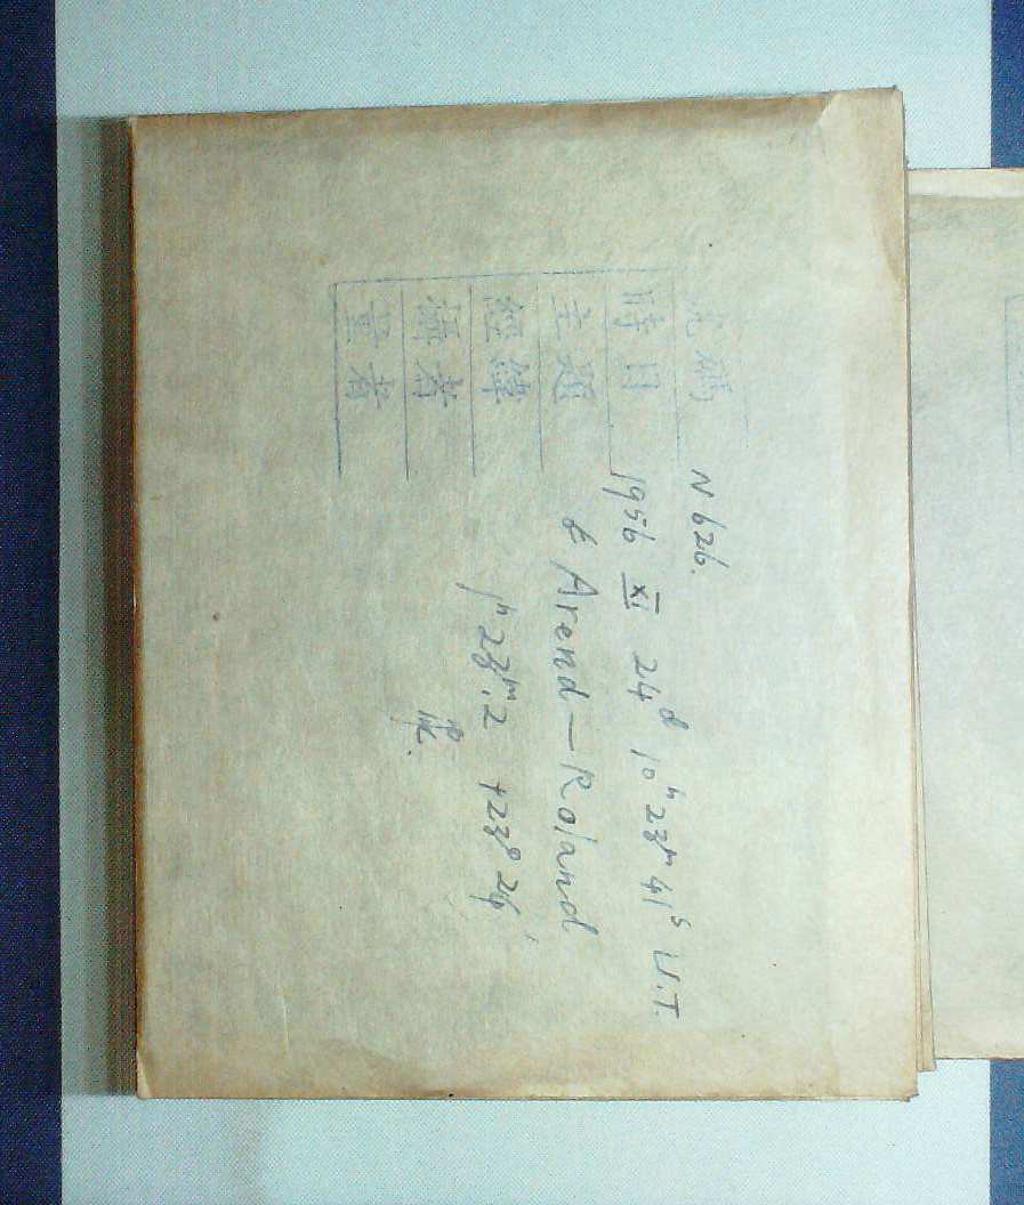 號碼 N 626.
時日 1956 XI 24d 10h 23m 41s U.T.
主題 ☄ Arend—Roland
經緯 1h 23m.2 +23° 24'
攝者
量者